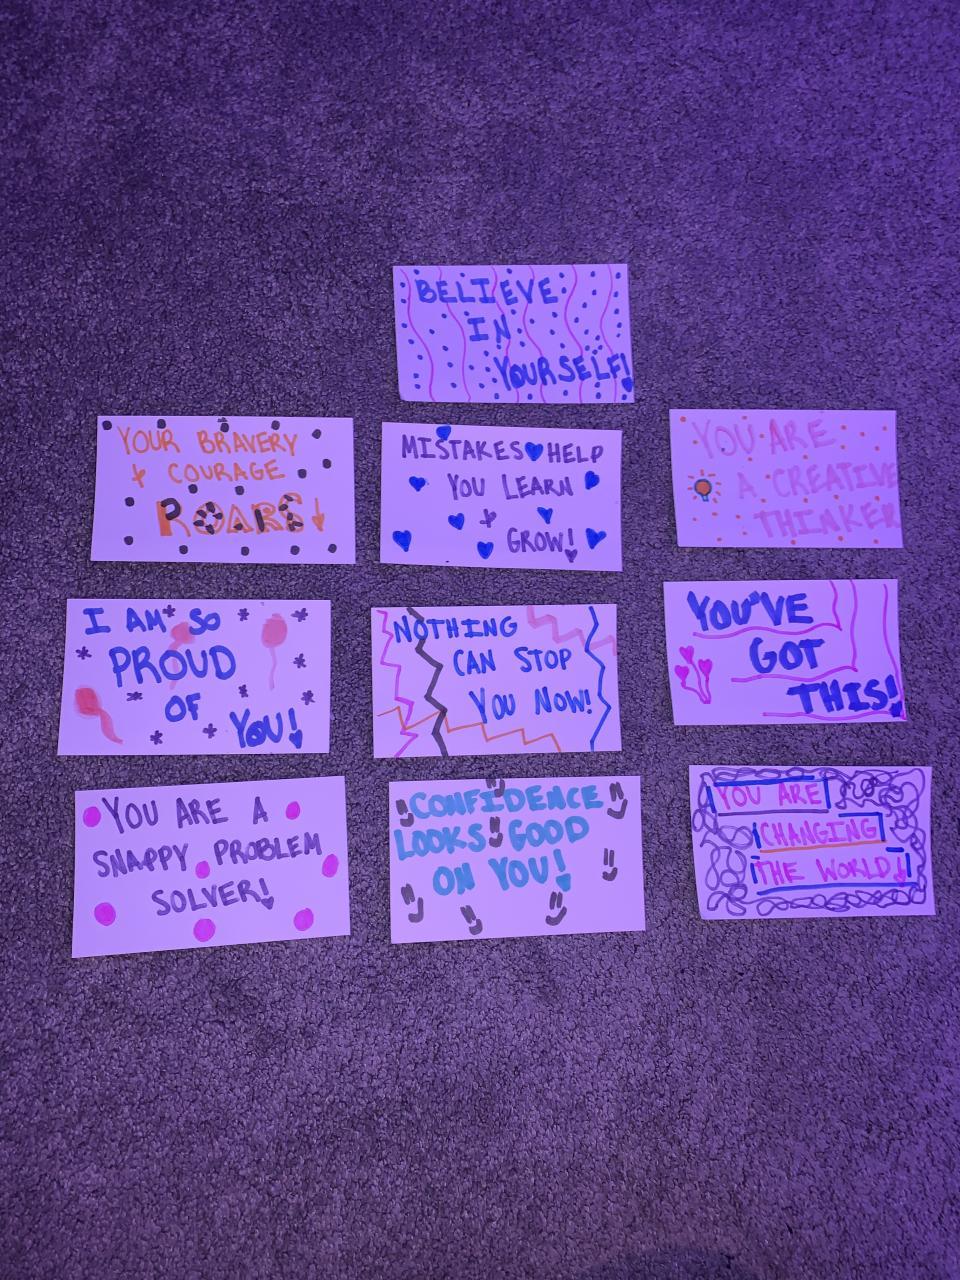 BELIEVE
IN
YOURSELF!
YOUR BRAVERY
& COURAGE
ROARS!
MISTAKES HELP
YOU LEARN
&
GROW!
YOU ARE
A CREATIVE
THINKER
I AM SO
PROUD
OF
YOU!
NOTHING
CAN STOP
YOU NOW!
YOU'VE
GOT
THIS!
YOU ARE A
SNAPPY PROBLEM
SOLVER!
CONFIDENCE
LOOKS GOOD
ON YOU!
YOU ARE
CHANGING
THE WORLD!